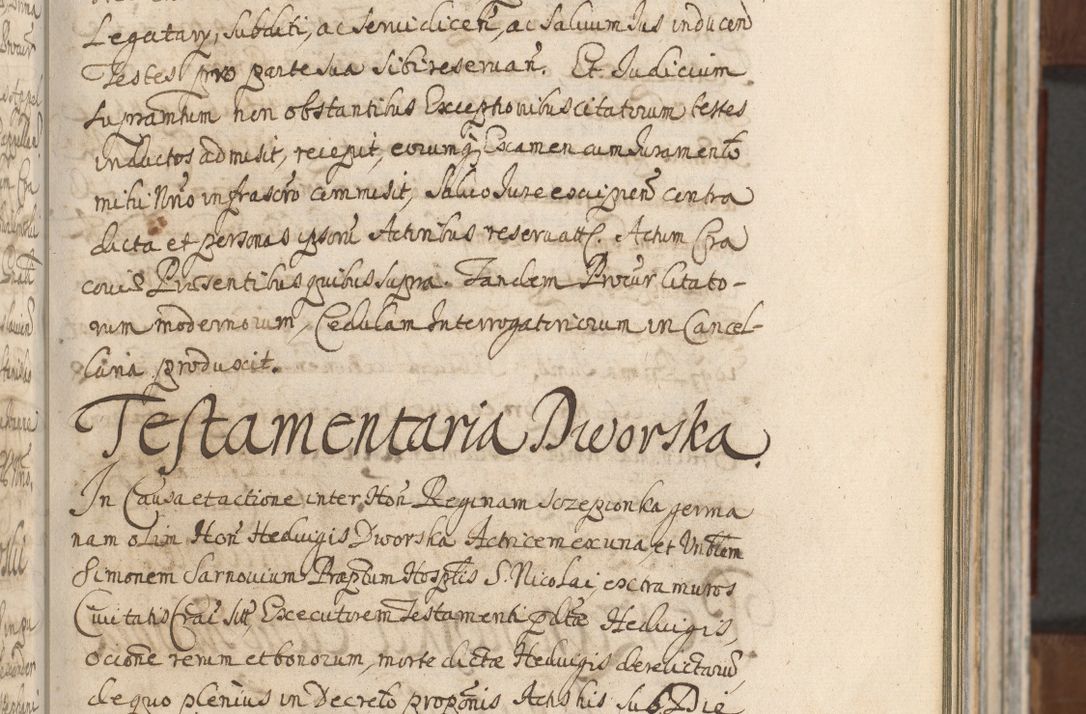 Legatary, subditi, ac servi dicen̄, ac salvum Jus inducen̄
Testes pro parte sua sibi reservan̄. Et Judicium
supramtum non obstantibus Exceptionibus citatorum testes
inductos admisit, recepit, eorumq̃ Examen cum Juramento
mihi Nrio infrascro commisit, salvo Jure excipien̄ contra
dicta et personas ipsorũ Actoribus reservatt. Actum Cra
coviæ Præsentibus quibus supra. Tandem Procur Citato-
rum modernorum, Cedulam Interrogatoriorum in Cancel-
laria produxit.
Testamentaria Dworska.
In Causa et actione inter Hon̄ Reginam Sczepionka germa
nam olim Hon̄ Hedvigis Dworska Actricem ex una, et Vnblem
Simonem Sarnovium Præptum Hosptlis S. Nicolai, extra muros
Civitatis Crac̄ sitt, Executorem Testamenti pdtæ Hedvigis,
ocione rerum et bonorum, morte dictæ Hedvigis derelictarũ,
de quo plenius in Decreto proponis Actis his sub Die